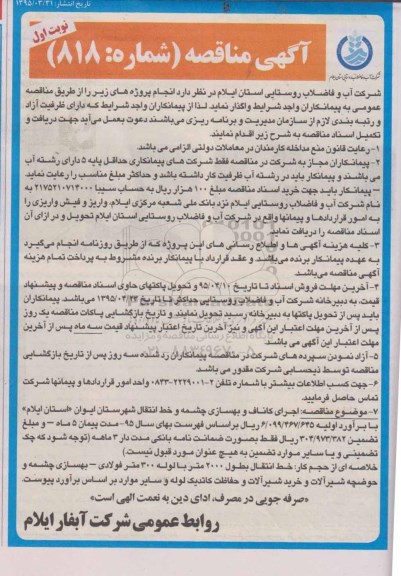 تاریخ انتشار: ۱۳۹۵/۰۳/۳۱
نوبت اول
آگهی مناقصه (شماره: ۸۱۸)
شرکت آب و فاضلاب روستایی استان ایلام در نظر دارد انجام پروژه های زیر را از طریق مناقصه
عمومی به پیمانکاران واجد شرایط واگذار نماید. لذا از پیمانکاران واجد شرایط که دارای ظرفیت آزاد
و رتبه بندی لازم از سازمان مدیریت و برنامه ریزی می‌باشند دعوت بعمل می‌آید جهت دریافت و
تکمیل اسناد مناقصه به شرح زیر اقدام نمایند
۱-رعایت قانون منع مداخله کارمندان در معاملات دولتی الزامی می باشد.
۲- پیمانکاران مجاز به شرکت در مناقصه فقط شرکت های پیمانکاری حداقل پایه ۵ دارای رشته آب
می باشند و پیمانکار باید در رشته آب ظرفیت کار داشته باشد و حداکثر مبلغ مناسب را رعایت نماید
– پیمانکار باید جهت خرید اسناد مناقصه مبلغ ۱۰۰ هزار ریال به حساب سیبا ۲۱۷۵۲۱۰۷۱۴۰۰۰ به
نام شرکت آب و فاضلاب روستایی ایلام نزد بانک ملی شعبه مرکزی ایلام، واریز و فیش واریزی را
به امور قراردادها و پیمانها واقع در شرکت آب و فاضلاب روستایی استان ایلام تحویل و در ازای آن
اسناد مناقصه را دریافت نماید
۳-کلیه هزینه آگهی ها و اطلاع رسانی های این پروژه که از طریق روزنامه انجام می‌گیرد
به عهده پیمانکار برنده می‌باشد و عقد قرارداد با پیمانکار برنده مشروط به پرداخت تمام هزینه
آگهی مناقصه می‌باشد.
۴-آخرین مهلت فروش اسناد تا تاریخ ۹۵/۰۴/۱۰ و تحویل پاکتهای حاوی اسناد مناقصه و پیشنهاد
قیمت، به دبیرخانه شرکت آب و فاضلاب روستایی حداکثر تا تاریخ ۱۳۹۵/۰۴/۲۴ می‌باشد. پیمانکاران
باید پس از تحویل پاکتها به دبیرخانه رسید تحویل نمایند و تاریخ بازگشایی پاکات مناقصه یک روز
پس از آخرین مهلت اعتبار این آگهی و نیز آخرین تاریخ اعتبار پیشنهاد قیمت سه ماه پس از آخرین
مهلت اعتبار این آگهی می باشد.
۵-آزاد نمودن سپرده های شرکت در مناقصه پیمانکاران رد شده سه روز پس از تاریخ بازگشایی
مناقصه توسط ذیحسابی شرکت مقدور می باشد.
۶-جهت کسب اطلاعات بیشتر با شماره تلفن ۲-۰۸۴۳-۲۲۲۹۰۰۱ واحد امور قراردادها و پیمانها شرکت
تماس حاصل فرمایید
۷-موضوع مناقصه: اجرای کاناف و بهسازی چشمه و خط انتقال شهرستان ایوان «استان ایلام»
با برآورد اولیه ۶/۰۹۹/۴۶۷/۶۴۵ ریال بر اساس فهرست بهای سال ۹۵-مدت پیمان ۵ ماه – و مبلغ
تضمین ۳۰۴/۹۷۳/۳۸۲ ریال فقط بصورت ضمانت نامه بانکی مدت دار ۳ ماهه (توجه شود که چک
تضمینی و یا سایر موارد تضمین به هیچ عنوان مورد قبول نیست.)
خلاصه ای از حجم کار: خط انتقال بطول ۲۰۰۰ متر با لوله ۳۰۰ متر فولادی – بهسازی چشمه و
حوضچه شیرآلات و خرید شیرآلات و حفاظت کاتدیک لوله و سایر موارد بر اساس برآورد پیوست.
«صرفه جویی در مصرف، ادای دین به نعمت الهی است»
روابط عمومی شرکت آبفار ایلام